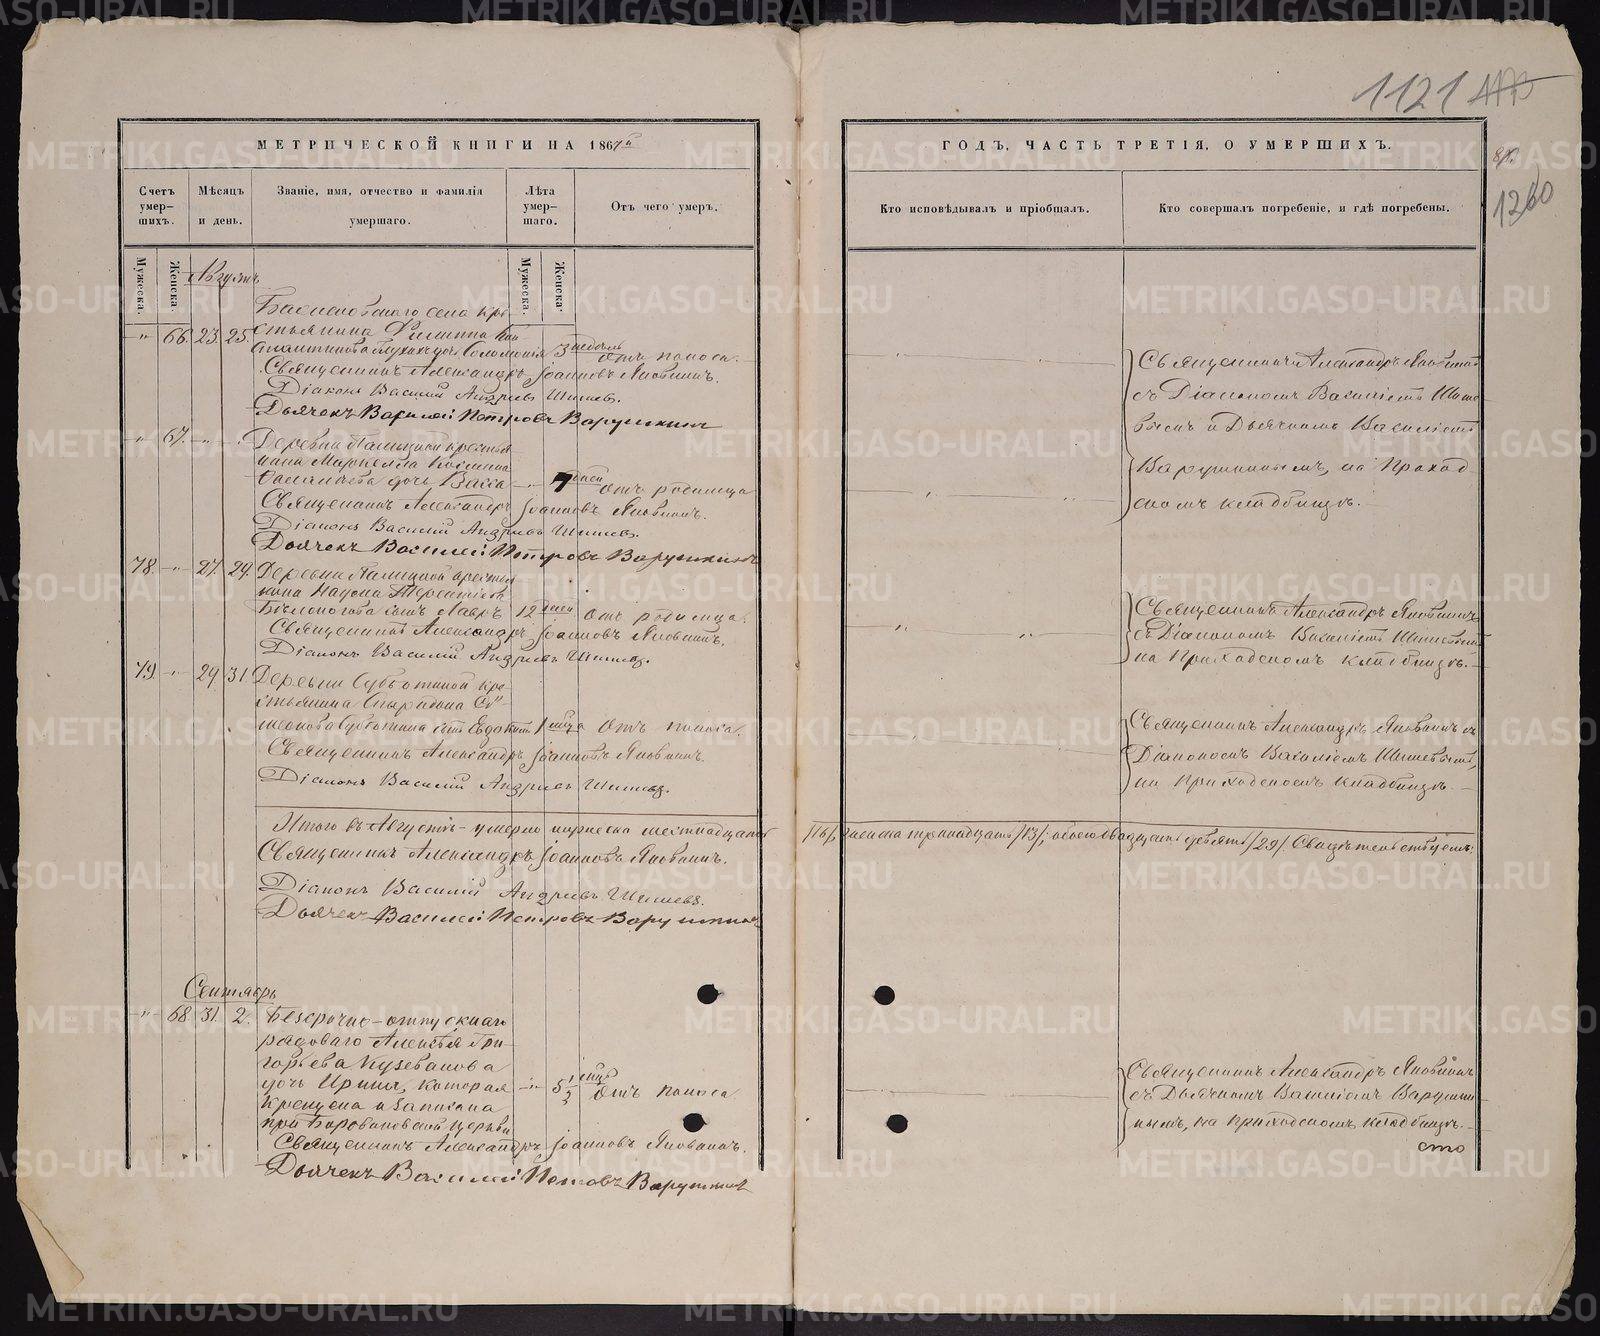 1121
МЕТРИЧЕСКОЙ КНИГИ НА 186
ГОДЪ, ЧАСТЬ ТРЕТІЯ, О УМЕРШИХЪ.
1260
Счетъ умершихъ.
Мѣсяцъ и день.
Званіе, имя, отчество и фамилія умершаго.
Лѣта умершаго.
Отъ чего умеръ.
Кто исповѣдывалъ и пріобщалъ.
Кто совершалъ погребеніе, и гдѣ погребены.
Мужеска.
Женска.
Мужеска.
Женска.
Августъ
66. 23. 25.
села кре-
стьянина Филиппа
дочь Соломонія 3 недѣль Отъ поноса.
Священникъ Александръ Іоанновъ
Діаконъ Василій Андреевъ Шишевъ.
Дьячекъ Василій Петровъ Варушкинъ
Священникъ Александръ
съ Діакономъ Василіемъ Шише-
вымъ и Дьячкомъ Василіемъ
Варушкинымъ, на Приход-
скомъ кладбищѣ.
67.
Деревни крестья-
нина
дочь Васса 7 дней Отъ родимца
Священникъ Александръ Іоанновъ
Діаконъ Василій Андреевъ Шишевъ.
Дьячекъ Василій Петровъ Варушкинъ
78. 27. 29.
Деревни крестья-
нина Наума Терентьева
Бѣлоногова сынъ Лавръ 12 дней Отъ родимца.
Священникъ Александръ Іоанновъ
Діаконъ Василій Андреевъ Шишевъ.
Священникъ Александръ
съ Діакономъ Василіемъ Шишевымъ
на Приходскомъ кладбищѣ.
79. 29. 31
Деревни Субботиной кре-
стьянина Спиридона Си-
меонова Субботина сынъ Евдокимъ 1 мѣсяца Отъ поноса.
Священникъ Александръ Іоанновъ
Діаконъ Василій Андреевъ Шишевъ.
Священникъ Александръ съ
Діакономъ Василіемъ Шишевымъ,
на Приходскомъ кладбищѣ.
Итого въ Августѣ умерло мужеска шестнадцать /16/, женска тринадцать /13/; обоего двадцать девять /29/. Свидѣтельствуемъ:
Священникъ Александръ Іоанновъ
Діаконъ Василій Андреевъ Шишевъ.
Дьячекъ Василій Петровъ Варушкинъ
Сентябрь
68. 31. 2.
Безсрочно-отпускнаго
рядоваго Алексѣя Гри-
горьева Кузеванова
дочь Ирина, которая 5 1/2 мѣс. Отъ поноса
крещена и записана
при церкви
Священникъ Александръ Іоанновъ
Дьячекъ Василій Петровъ Варушкинъ
Священникъ Александръ
съ Дьячкомъ Василіемъ Варушки-
нымъ, на Приходскомъ кладбищѣ.
сто
METRIKI.GASO-URAL.RU